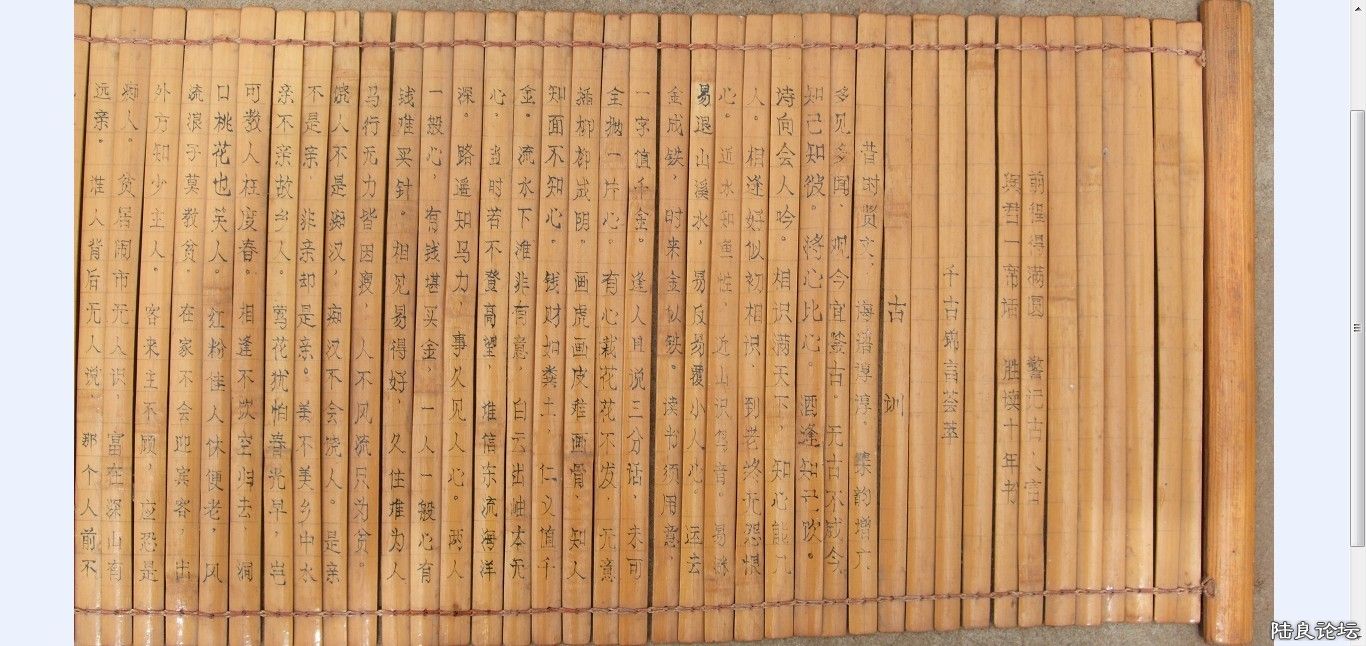 前程得满圆 警记古人言
與君一席话 胜读十年书
千古锦言荟萃
古训
昔时贤文，诲语谆谆，集韵增广
多见多闻，观今宜鉴古。无古不成今
知己知彼。将心比心。酒逢知己饮。
诗向会人吟。相识满天下，知心能几
人。相逢好似初相识，到老终无怨恨
心。近水知鱼性，近山识鸟音。易涨
易退山溪水，易反易覆小人心。运去
金成铁，时来金似铁。读书须用意，
一字值千金。逢人且说三分话，未可
全抛一片心。有心栽花花不发，无意
插柳柳成阴。画虎画皮难画骨，知人
知面不知心。钱财如粪土，仁义值千
金。流水下滩非有意，白云出岫本无
心。当时若不登高望，谁信东流海洋
深。路遥知马力，事久见人心。两人
一般心，有钱堪买金，一人一般心有
钱难买针。相见易得好，久住难为人
马行无力皆因瘦，人不风流只为贫。
饶人不是痴汉，痴汉不会饶人。是亲
不是亲，非亲却是亲。美不美乡中水
亲不亲故乡人。莺花犹怕春光早，岂
可教人枉度春。相逢不饮空归去，洞
口桃花也笑人。红粉佳人休便老，风
流浪子莫教贫。在家不会迎宾客，出
外方知少主人。客来主不顾，应恐是
痴人。贫居闹市无人识，富在深山有
远亲。谁人背后无人说，那个人前不
陆良论坛